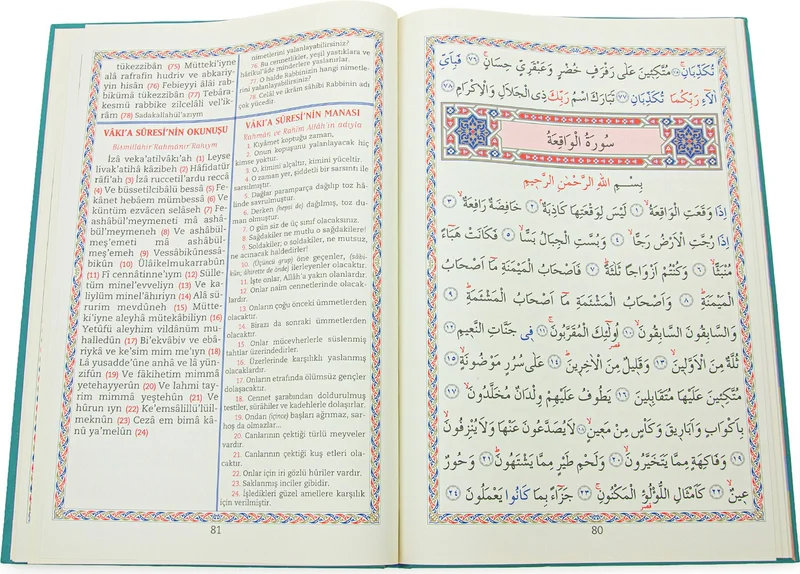 تُكَذِّبَانِ ﴿٧٥﴾ مُتَّكِـِٔينَ عَلٰى رَفْرَفٍ خُضْرٍ وَعَبْقَرِىٍّ حِسَانٍ ﴿٧٦﴾ فَبِاَىِّ
اٰلَٓاءِ رَبِّكُمَا تُكَذِّبَانِ ﴿٧٧﴾ تَبَارَكَ اسْمُ رَبِّكَ ذِى الْجَلَالِ وَالْاِكْرَامِ ﴿٧٨﴾
سُورَةُ الْوَاقِعَةُ
بِسْمِ اللّٰهِ الرَّحْمٰنِ الرَّحِيمِ
اِذَا وَقَعَتِ الْوَاقِعَةُ ﴿١﴾ لَيْسَ لِوَقْعَتِهَا كَاذِبَةٌ ﴿٢﴾ خَافِضَةٌ رَافِعَةٌ ﴿٣﴾
اِذَا رُجَّتِ الْاَرْضُ رَجًّا ﴿٤﴾ وَبُسَّتِ الْجِبَالُ بَسًّا ﴿٥﴾ فَكَانَتْ هَبَٓاءً
مُنْبَثًّا ﴿٦﴾ وَكُنْتُمْ اَزْوَاجًا ثَلٰثَةً ﴿٧﴾ فَاَصْحَابُ الْمَيْمَنَةِ مَٓا اَصْحَابُ
الْمَيْمَنَةِ ﴿٨﴾ وَاَصْحَابُ الْمَشْـَٔمَةِ مَٓا اَصْحَابُ الْمَشْـَٔمَةِ ﴿٩﴾
وَالسَّابِقُونَ السَّابِقُونَ ﴿١٠﴾ اُولٰٓئِكَ الْمُقَرَّبُونَ ﴿١١﴾ فِى جَنَّاتِ النَّعِيمِ ﴿١٢﴾
ثُلَّةٌ مِنَ الْاَوَّلِينَ ﴿١٣﴾ وَقَلِيلٌ مِنَ الْاٰخِرِينَ ﴿١٤﴾ عَلٰى سُرُرٍ مَوْضُونَةٍ ﴿١٥﴾
مُتَّكِـِٔينَ عَلَيْهَا مُتَقَابِلِينَ ﴿١٦﴾ يَطُوفُ عَلَيْهِمْ وِلْدَانٌ مُخَلَّدُونَ ﴿١٧﴾
بِاَكْوَابٍ وَاَبَارِيقَ وَكَاْسٍ مِنْ مَعِينٍ ﴿١٨﴾ لَا يُصَدَّعُونَ عَنْهَا وَلَا يُنْزِفُونَ
﴿١٩﴾ وَفَاكِهَةٍ مِمَّا يَتَخَيَّرُونَ ﴿٢٠﴾ وَلَحْمِ طَيْرٍ مِمَّا يَشْتَهُونَ ﴿٢١﴾ وَحُورٌ
عِينٌ ﴿٢٢﴾ كَاَمْثَالِ اللُّؤْلُؤِ الْمَكْنُونِ ﴿٢٣﴾ جَزَٓاءً بِمَا كَانُوا يَعْمَلُونَ ﴿٢٤﴾
80
tükezzibân (75) Mütteki'iyne
alâ rafrafin hudriv ve abkariy-
yin hisân (76) Febieyyi âlâi rab-
bikümâ tükezzibân (77) Tebâra-
kesmü rabbike zilcelâli vel'ik-
râm (78) Sadakallahül'azıym
VÂKI'A SÛRESİ'NİN OKUNUŞU
Bismillâhir Rahmânir'Rahıym
İzâ veka'atilvâkı'ah (1) Leyse
livak'atihâ kâzibeh (2) Hâfidatür
râfi'ah (3) İzâ ruccetil'ardu reccâ
(4) Ve büssetilcibâlü bessâ (5) Fe-
kânet hebâem mümbessâ (6) Ve
küntüm ezvâcen selâseh (7) Fe-
ashâbül'meymeneti mâ ashâ-
bül'meymeneh (8) Ve ashâbül-
meş'emeti mâ ashâbül-
meş'emeh (9) Vessâbikûnessâ-
bikûn (10) Ülâikelmukarrabûn
(11) Fî cennâtinne'ıym (12) Sülle-
tüm minel'evveliyn (13) Ve ka-
liylüm minel'âhıriyn (14) Alâ sü-
rurim mevdûneh (15) Mütte-
ki'iyne aleyhâ mütekâbiliyn (16)
Yetûfü aleyhim vildânüm mu-
halledûn (17) Bi'ekvâbiv ve ebâ-
riykâ ve ke'sim mim me'ıyn (18)
Lâ yusadde'ûne anhâ ve lâ yün-
zifûn (19) Ve fâkihetim mimmâ
yetehayyerûn (20) Ve lahmi tay-
rim mimmâ yeştehûn (21) Ve
hûrun ıyn (22) Ke'emsâlillü'lüil-
meknûn (23) Cezâ em bimâ kâ-
nû ya'melûn (24)
nimetlerini yalanlayabilirsiniz?
76. Bu cennetlikler, yeşil yastıklara ve
hârikul'âde minderlere yaslanırlar.
77. O halde Rabbinizin hangi nimetle-
rini yalanlayabilirsiniz?
78. Celâl ve ikrâm sâhibi Rabbinin adı
çok yücedir.
VÂKI'A SÛRESİ'NİN MANASI
Rahmân ve Rahîm Allâh'ın adıyla
1. Kıyâmet koptuğu zaman,
2. Onun kopuşunu yalanlayacak hiç
kimse yoktur.
3. O, kimini alçaltır, kimini yüceltir.
4. O zaman yer, şiddetli bir sarsıntı ile
sarsılmıştır.
5. Dağlar paramparça dağılıp toz hâ-
linde savrulmuştur.
6. Derken (hepsi de) dağılmış, toz du-
man olmuştur.
7. O gün siz de üç sınıf olacaksınız.
8. Sağdakiler ne mutlu o sağdakilere!
9. Soldakiler, o soldakiler, ne mutsuz,
ne acınacak haldedirler!
10. (Üçüncü grup) öne geçenler, (sâbi-
kûn; âhirette de önde) ilerleyenler olacaktır.
11. İşte onlar, Allâh'a yakın olanlardır.
12. Onlar naîm cennetlerinde olacak-
lardır.
13. Onların çoğu önceki ümmetlerden
olacaktır.
14. Birazı da sonraki ümmetlerden
olacaktır.
15. Onlar mücevherlerle süslenmiş
tahtlar üzerindedirler.
16. Üzerlerinde karşılıklı yaslanmış
olacaklardır.
17. Onların etrafında ölümsüz gençler
dolaşacaktır.
18. Cennet şarabından doldurulmuş
testiler, sürâhiler ve kadehlerle dolaşırlar.
19. Ondan (içince) başları ağrımaz, sar-
hoş da olmazlar...
20. Canlarının çektiği türlü meyveler
vardır.
21. Canlarının çektiği kuş etleri ola-
caktır.
22. Onlar için iri gözlü hûriler vardır.
23. Saklanmış inciler gibidir.
24. İşledikleri güzel amellere karşılık
için verilmiştir.
81